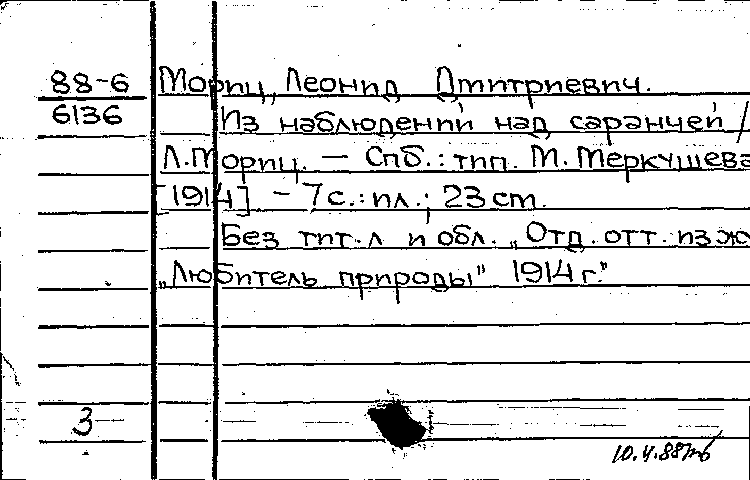 88-6 Мориц, Леонид Дмитриевич.
6136 Из наблюдений над саранчей /
Л.Мориц. — Спб.: тип. М. Меркушева
[1914] - 7 с.: ил.; 23 cm.
Без тит.л и обл. „Отд. отт. из ж
„Любитель природы" 1914 г."
3